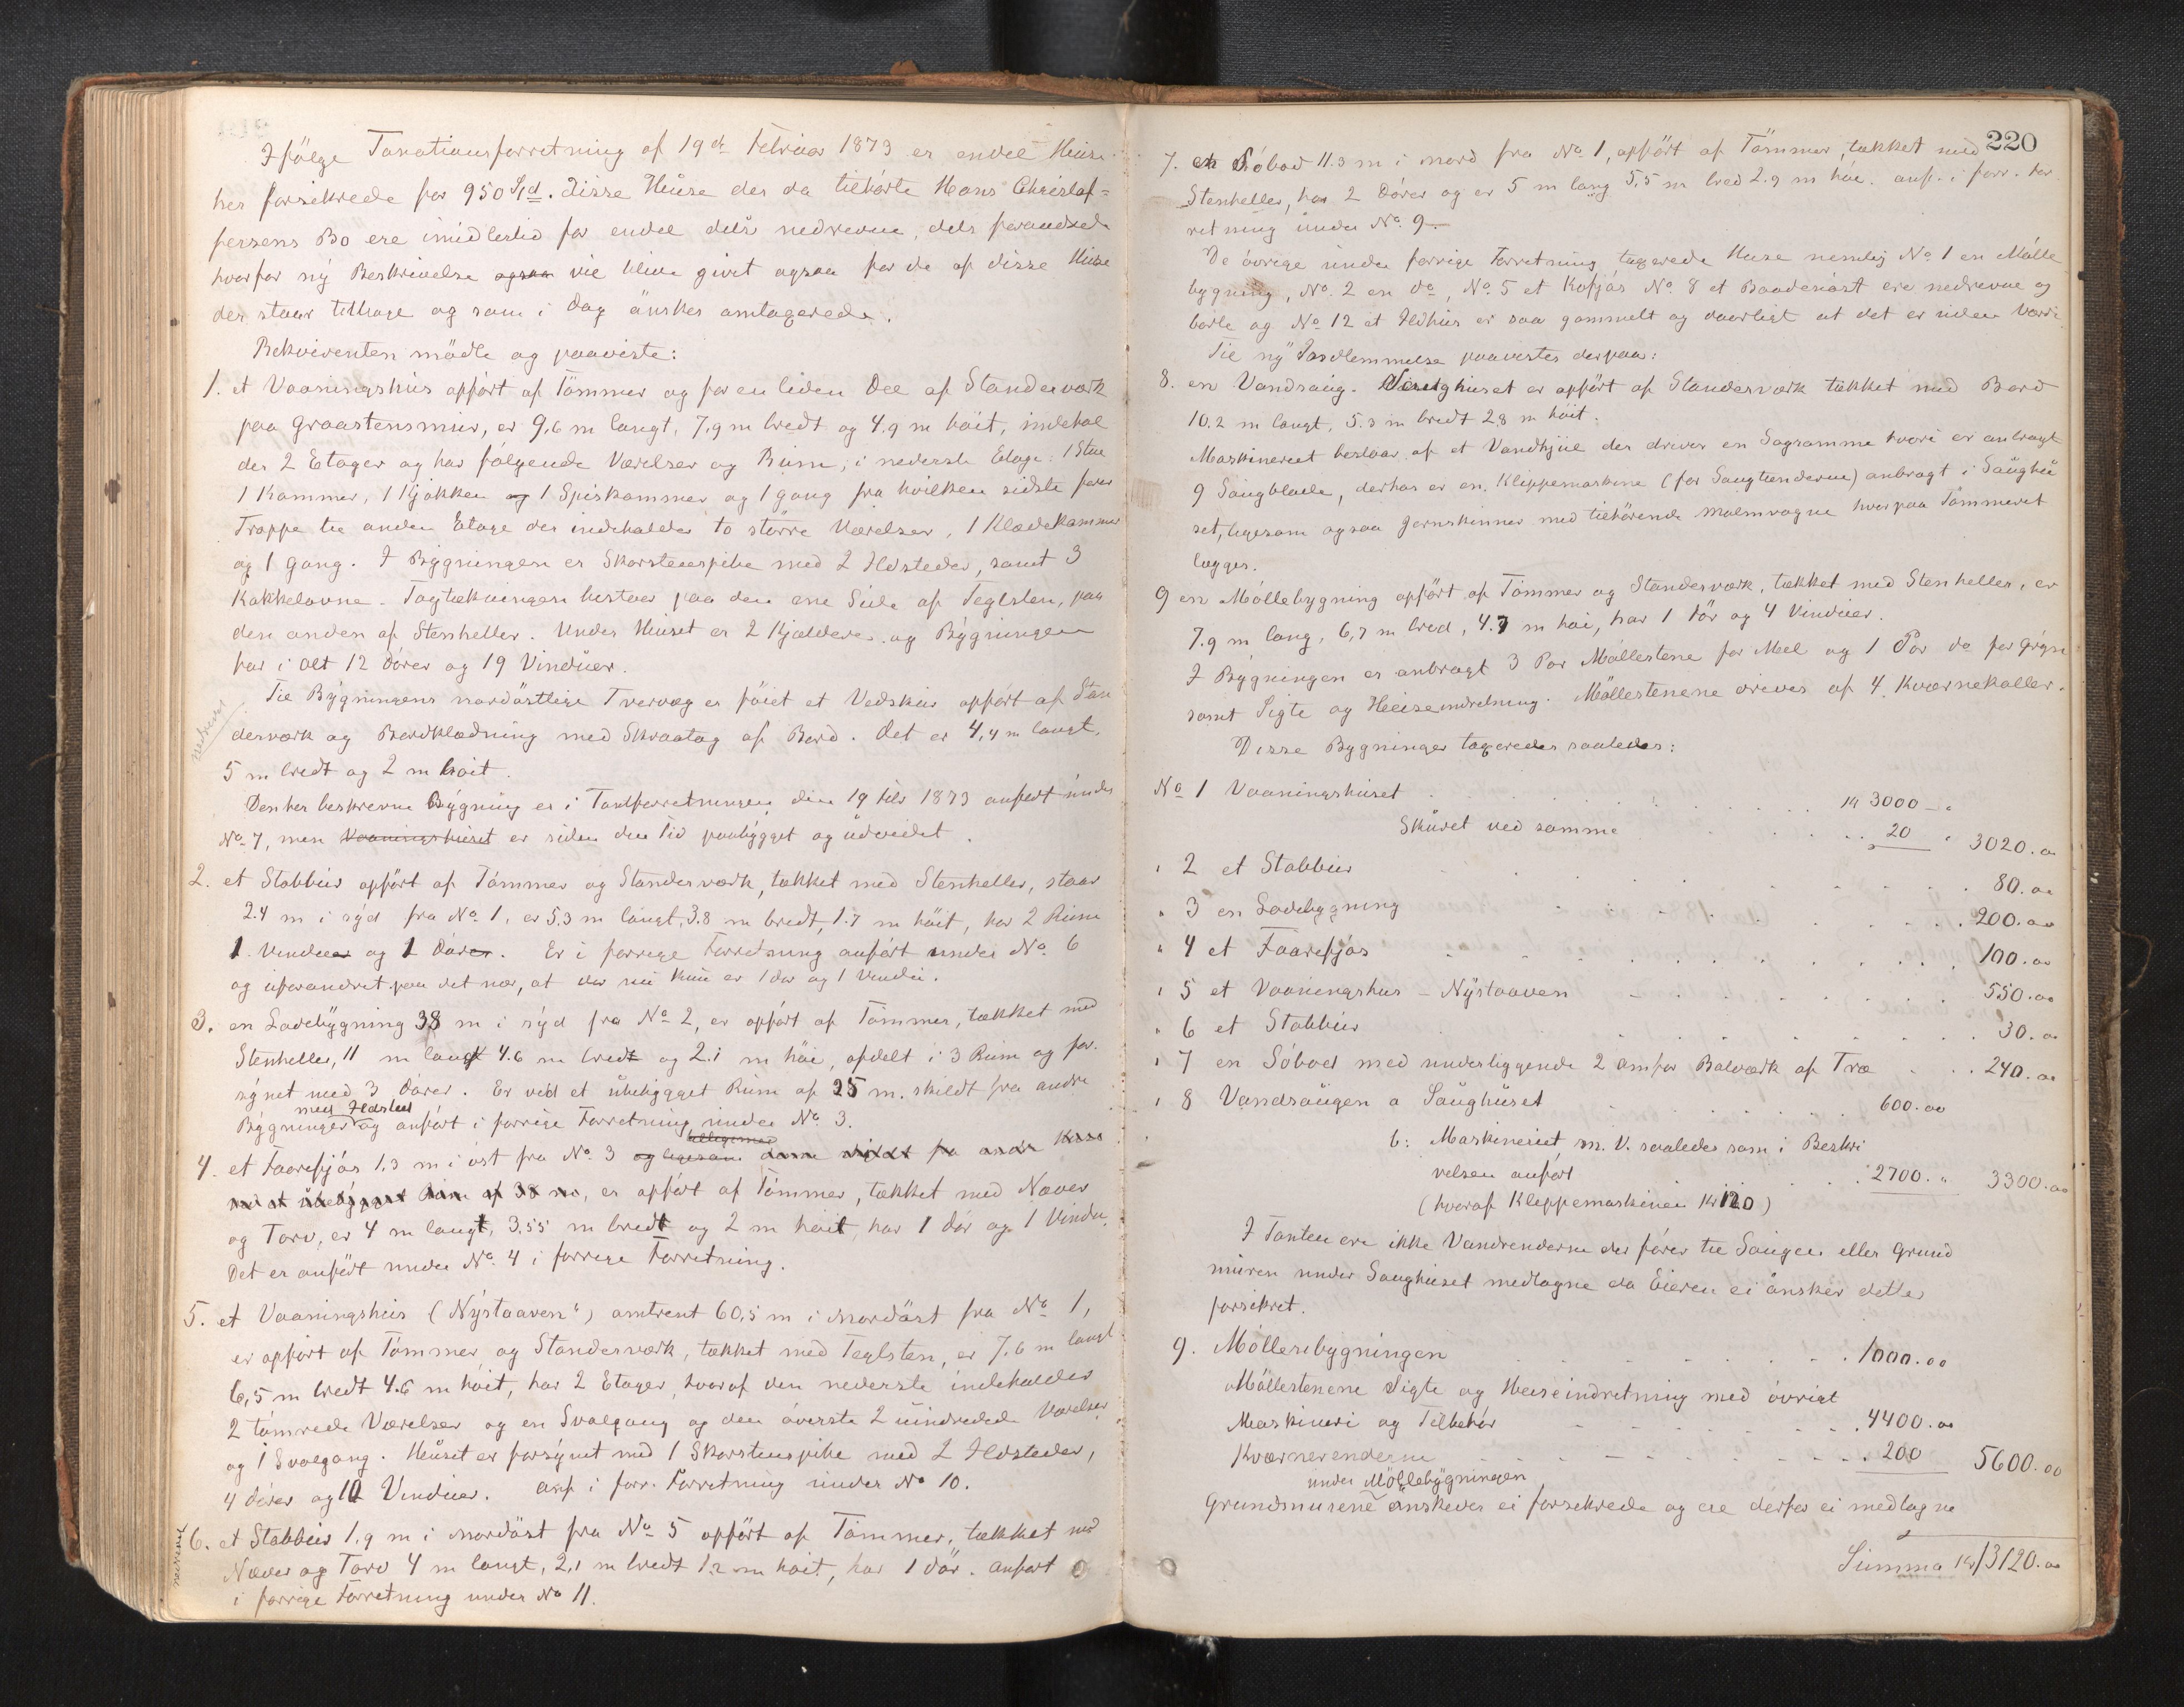 Ifölge Taxationsforretning af 19de Februar 1873 er endel Huse
her forsikrede for 950 Spd. Disse Huse der da tilhörte Hans Christof-
fersens Bo ere imidlertid for endel dels nedrevne, dels forandrede
hvorfor ny Beskrivelse ogsaa vil blive givet ogsaa for de af disse Huse
der staar tilbage og som i Dag önskes omtaxerede.
Rekvirenten mödte og paaviste:
1. et Vaaningshus opfört af Tömmer og for en liden Del af Standerværk
paa Graastensmur, er 9,6 m langt, 7,9 m bredt og 4.9 m höit, indehol
der 2 Etager og har fölgende Værelser og Rum; i nederste Etage: 1 Stue
1 Kammer, 1 Kjökken og 1 Spiskammer og 1 Gang fra hvilken sidste förer
Trappe til anden Etage der indeholder to större Værelser, 1 Klædekammer
og 1 Gang. I Bygningen er Skorstenspibe med 2 Ildsteder, samt 3
Kakkelovne. Tagtækningen bestaar paa den ene Side af Teglsten, paa
den anden af Stenheller. Under Huset er 2 Kjældere og Bygningen
har i Alt 12 Dörer og 19 Vinduer.
Til Bygningens nordöstlige Tvervæg er föiet et Vedskur opfört af Stan
derværk og Bordklædning med Skraatag af Bord. Det er 4,4 m langt,
5 m bredt og 2 m höit.
Den her beskrevne Bygning er i Taxtforretningen den 19 Febr 1873 anfört under
No 7, men Vaaningshuset er siden den Tid paabygget og udvidet.
2. et Stabbur opfört af Tömmer og Standerværk, tækket med Stenheller, staar
2.4 m i syd fra No 1, er 5.3 m langt, 3.8 m bredt, 1.7 m höit, har 2 Rum
1 Vindu og 1 Dör. Er i forrige Forretning anfört under No 6
og uforandret paa det nær, at der nu kun er 1 Dör og 1 Vindu.
3. en Ladebygning 38 m i syd fra No 2, er opfört af Tömmer, tækket med
Stenheller, 11 m lang 4.6 m bred og 2.1 m höi, afdelt i 3 Rum og for-
synet med 3 Dörer. Er ved et ubebygget Rum af 25 m. skildt fra andre
Bygninger med Ildsted og anfört i forrige Forretning under No 3.
4. et Faarefjös 1.3 m i öst fra No 3 og ligesom denne skildt fra andre Huse
ved et ubebygget Rum af 38 m, er opfört af Tömmer, tækket med Næver
og Torv, er 4 m langt, 3,55 m bredt og 2 m höit, har 1 Dör og 1 Vindu.
Det er anfört under No 4 i forrige Forretning.
5. et Vaaningshus ("Nystaaven") omtrent 60,5 m i nordöst fra No 1,
er opfört af Tömmer og Standerværk, tækket med Teglsten, er 7.6 m langt
6,5 m bredt 4.6 m höit, har 2 Etager, hvoraf den nederste indeholder
2 tömrede Værelser og en Svalgang og den överste 2 uindredede Værelser
og 1 Svalgang. Huset er forsynet med 1 Skorstenspibe med 2 Ildsteder,
4 Dörer og 10 Vinduer. Anf i forr. Forretning under No 10.
6. et Stabbur 1.9 m i nordöst fra No 5 opfört af Tömmer, tækket med
Næver og Torv 4 m langt, 2,1 m bredt 1.2 m höit, har 1 Dör. Anfört
i forrige Forretning under No 11.
220
7. en Söbod 11.3 m i nord fra No 1, opfört af Tömmer, tækket med
Stenheller, har 2 Dörer og er 5 m lang 5,5 m bred 2.9 m höi. anf. i forr. For
retning under No 9.
De övrige under forrige Forretning taxerede Huse nemlig No 1 en Mölle
bygning, No. 2 en do, No. 5 et Kofjös No. 8 et Baadenöst ere nedrevne og
borte og No 12 et Ildhus er saa gammelt og daarligt at det er uden Værdi
Til ny Indlemmelse paavistes derpaa:
8. en Vandsaug. Saughuset er opfört af Standerværk tækket med Bord
10.2 m langt, 5.3 m bredt 2,8 m höit.
Maskineriet bestaar af et Vandhjul der driver en Sagramme hvori er anbragt
9 Saugblade, derhos er en Klippemaskine (for Saugtænderne) anbragt i Saughu
set, ligesom ogsaa Jernskinner med tilhörende Malmvogne hvorpaa Tömmeret
lægges.
9 en Möllebygning opfört af Tömmer og Standerværk, tækket med Stenheller, er
7.9 m lang, 6,7 m bred, 4.7 m höi, har 1 Dör og 4 Vinduer.
I Bygningen er anbragt 3 Par Möllestene for Mel og 1 Par do for Gryn
samt Sigte og Heiseindretning. Möllestenene drives af 4 Kværnekaller.
Disse Bygninger taxeredes saaledes:
No 1 Vaaningshuset . . . Kr 3000 - "
Skuret ved samme . . . 20 " 3020.00
" 2 et Stabbur . . . 80.00
" 3 en Ladebygning . . . 200.00
" 4 et Faarefjös . . . 100.00
" 5 et Vaaningshus - Nystaaven . . . 550.00
" 6 et Stabbur . . . 30.00
" 7 en Söbod med underliggende 2 Omfar Bolværk af Træ . . . 240.00
" 8 Vandsaugen a Saughuset . . . 600.00
b: Maskineriet m. V. saaledes som i Beskri
velsen anfört . . . 2700. " 3300.00
(hvoraf Klippemaskinen Kr 120)
I Taxten ere ikke Vandrenderne der förer til Saugen eller Grund
muren under Saughuset medtagne da Eieren ei önsker dette
forsikret.
9. Möllebygningen . . . 1000.00
Möllestenene Sigte og Heiseindretning med övrigt
Maskineri og Tilbehör . . . 4400.00
Kværnerenderne . . . 200 5600.00
Grundmurene under Möllebygningen önskedes ei forsikrede og ere derfor ei medtagne
Summa Kr 13120.00